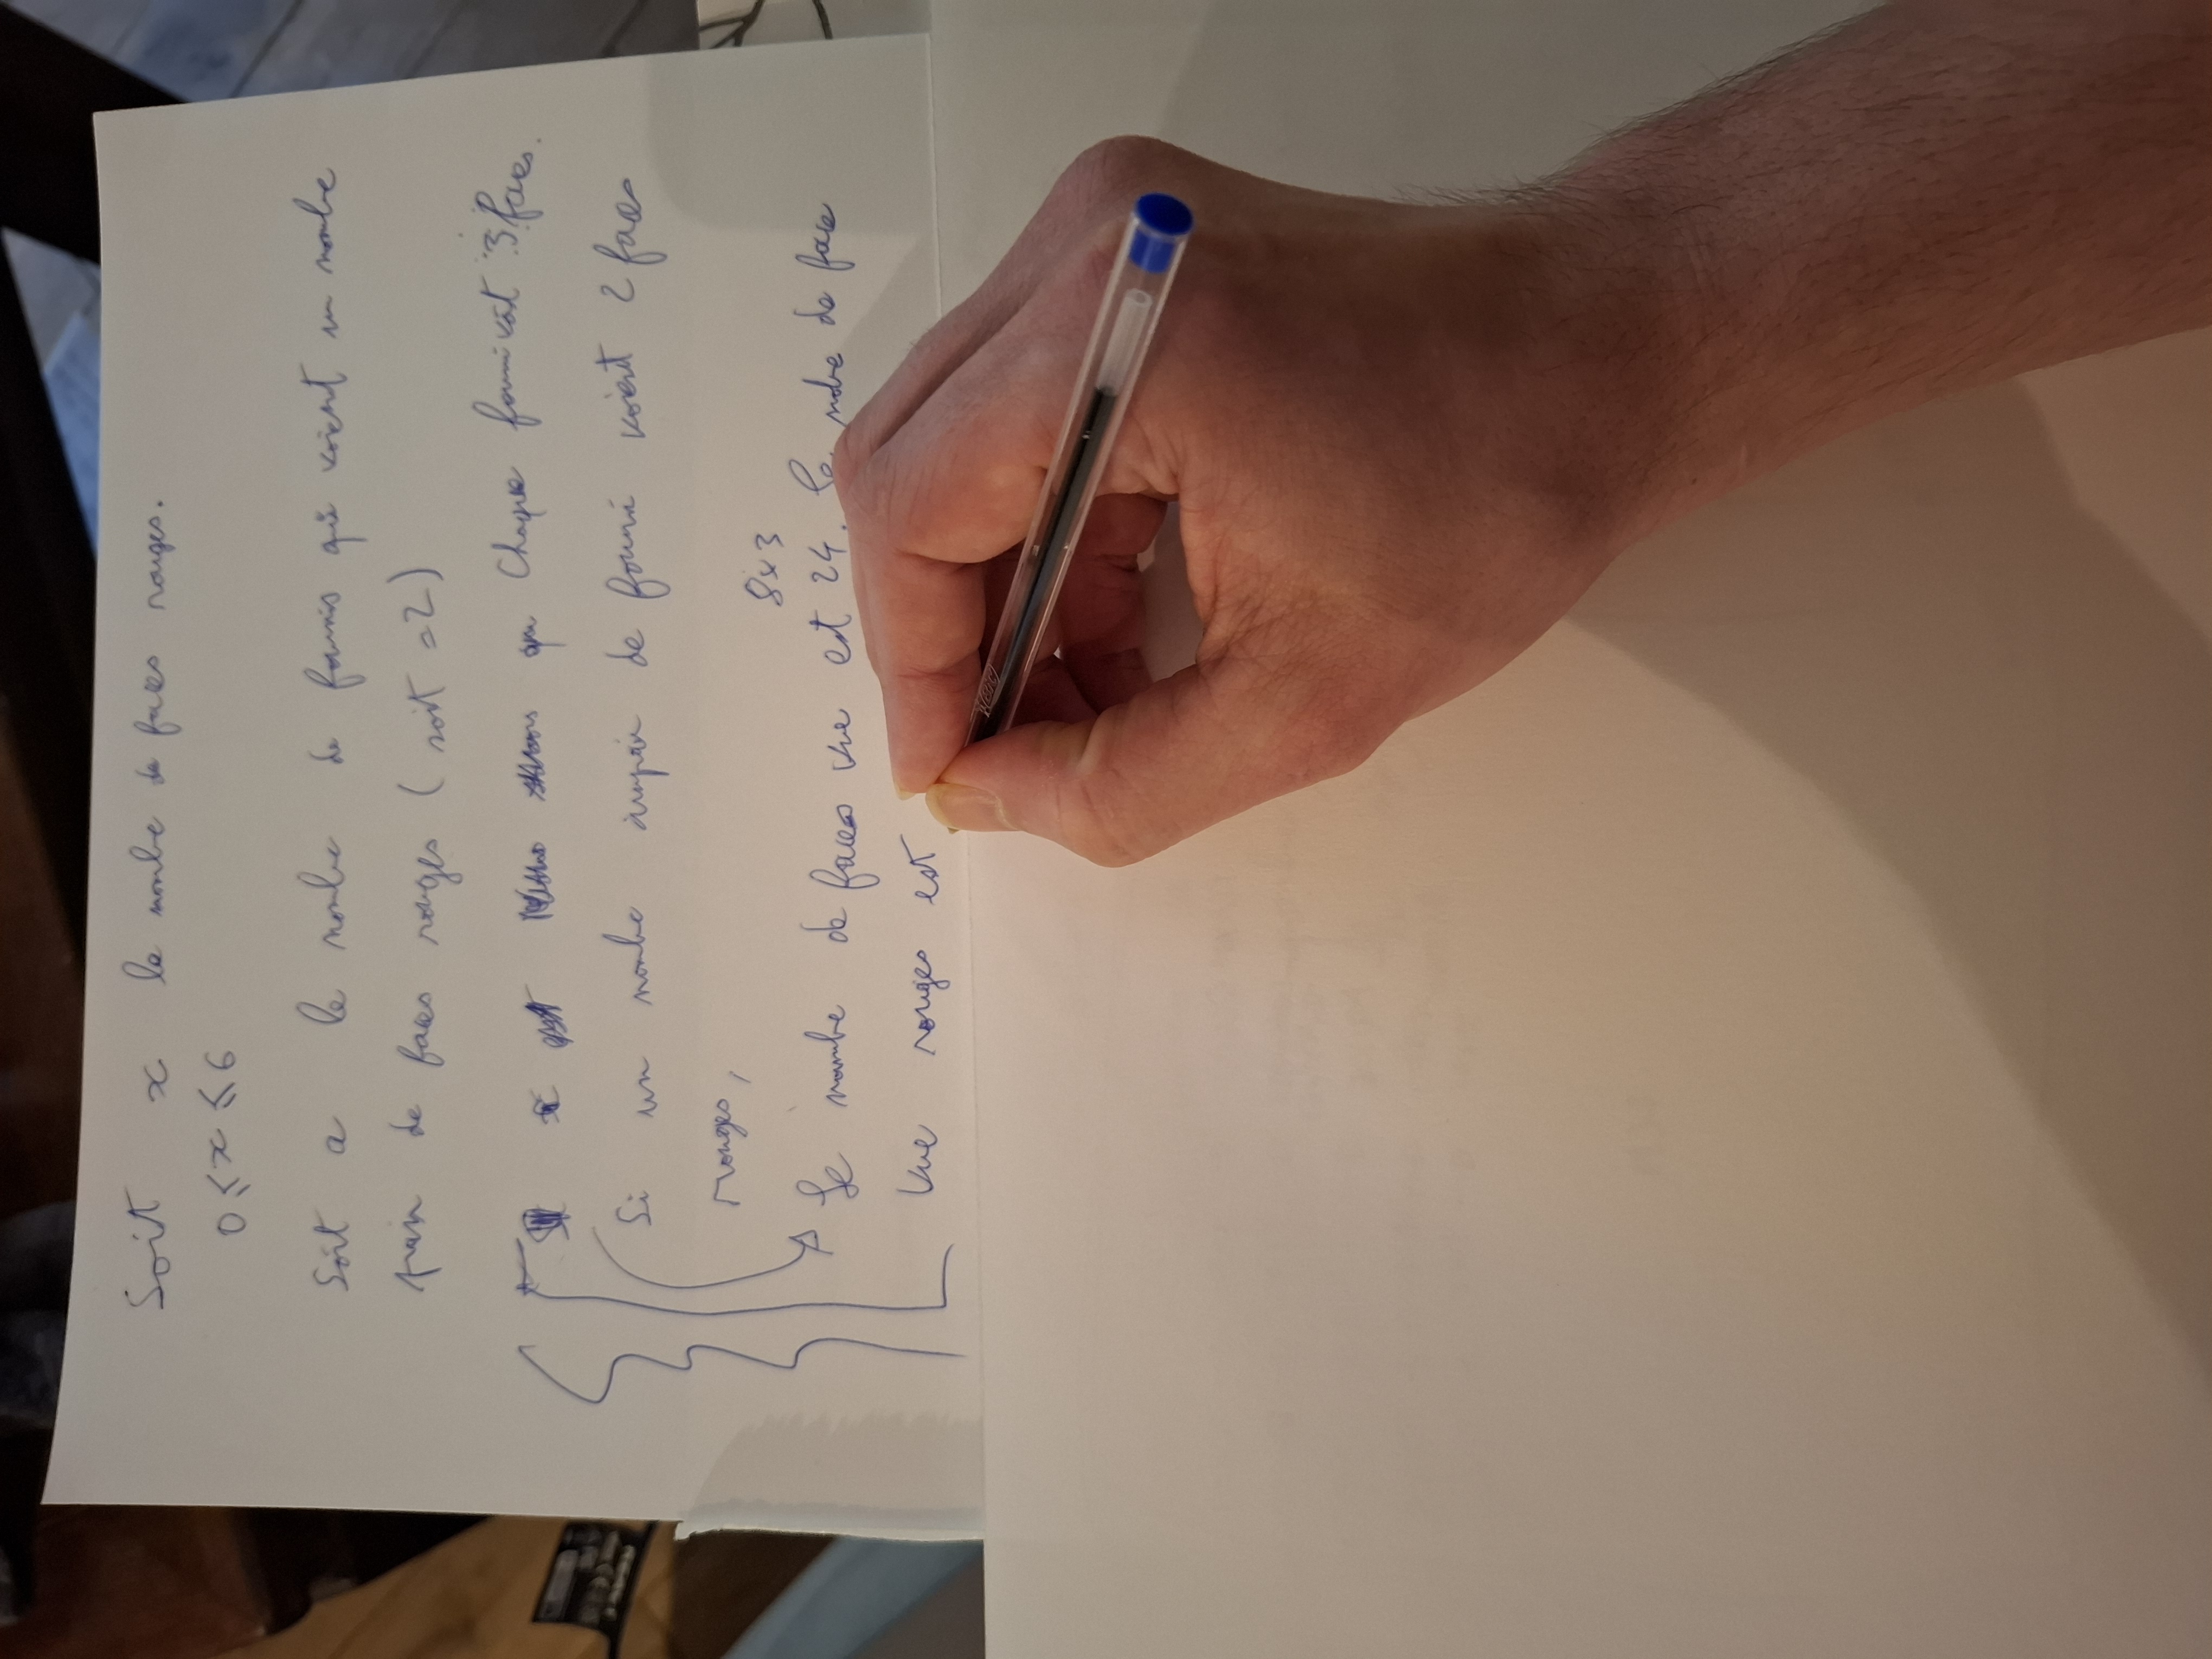 Soit x le nombre de faces rouges.
0 ⩽ x ⩽ 6
Soit a le nombre de fourmis qui voient un nombre
pair de faces rouges ( soit = 2 )
Chaque fourmi voit 3 faces.
Si un nombre impair de fourmi voient 2 faces
rouges,
8x3
Le nombre de faces vue est 24. Le nobre de face
vue rouges est